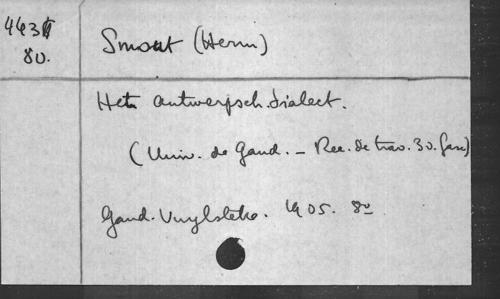 443
80.
Smout (Herm)
Het antwerpsch dialect.
(Univ. de Gand. - Rec. de trav. 30. fasc)
Gand. Vuylsteke. 1905. 8º